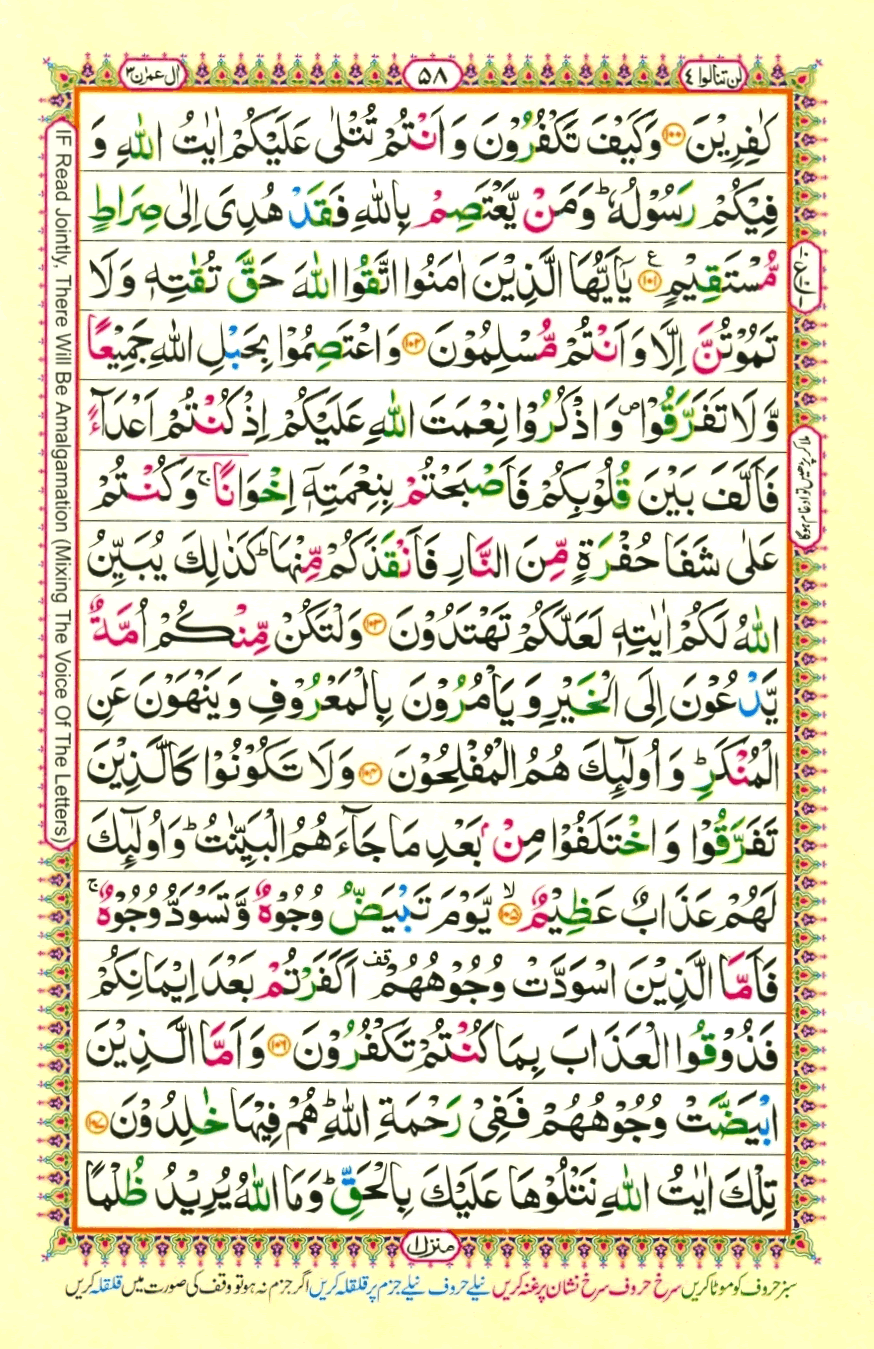 لن تنالوا ٤
٥٨
ال عمرٰن ٣
كٰفِرِيْنَ ﴿۱۰۰﴾ وَكَيْفَ تَكْفُرُوْنَ وَاَنْتُمْ تُتْلٰى عَلَيْكُمْ اٰيٰتُ اللّٰهِ وَ
فِيْكُمْ رَسُوْلُهٗ ؕ وَمَنْ يَّعْتَصِمْ بِاللّٰهِ فَقَدْ هُدِىَ اِلٰى صِرَاطٍ
مُّسْتَقِيْمٍ ﴿۱۰۱﴾ ع يٰۤاَيُّهَا الَّذِيْنَ اٰمَنُوا اتَّقُوا اللّٰهَ حَقَّ تُقٰتِهٖ وَلَا
تَمُوْتُنَّ اِلَّا وَاَنْتُمْ مُّسْلِمُوْنَ ﴿۱۰۲﴾ وَاعْتَصِمُوْا بِحَبْلِ اللّٰهِ جَمِيْعًا
وَّلَا تَفَرَّقُوْا ص وَاذْكُرُوْا نِعْمَتَ اللّٰهِ عَلَيْكُمْ اِذْ كُنْتُمْ اَعْدَآءً
فَاَلَّفَ بَيْنَ قُلُوْبِكُمْ فَاَصْبَحْتُمْ بِنِعْمَتِهٖۤ اِخْوَانًا ۚ وَكُنْتُمْ
عَلٰى شَفَا حُفْرَةٍ مِّنَ النَّارِ فَاَنْقَذَكُمْ مِّنْهَا ؕ كَذٰلِكَ يُبَيِّنُ
اللّٰهُ لَكُمْ اٰيٰتِهٖ لَعَلَّكُمْ تَهْتَدُوْنَ ﴿۱۰۳﴾ وَلْتَكُنْ مِّنْكُمْ اُمَّةٌ
يَّدْعُوْنَ اِلَى الْخَيْرِ وَيَاْمُرُوْنَ بِالْمَعْرُوْفِ وَيَنْهَوْنَ عَنِ
الْمُنْكَرِ ؕ وَاُولٰٓئِكَ هُمُ الْمُفْلِحُوْنَ ﴿۱۰۴﴾ وَلَا تَكُوْنُوْا كَالَّذِيْنَ
تَفَرَّقُوْا وَاخْتَلَفُوْا مِنْۢ بَعْدِ مَا جَآءَهُمُ الْبَيِّنٰتُ ؕ وَاُولٰٓئِكَ
لَهُمْ عَذَابٌ عَظِيْمٌ ﴿۱۰۵﴾ ۙ يَّوْمَ تَبْيَضُّ وُجُوْهٌ وَّتَسْوَدُّ وُجُوْهٌ ۚ
فَاَمَّا الَّذِيْنَ اسْوَدَّتْ وُجُوْهُهُمْ قف اَكَفَرْتُمْ بَعْدَ اِيْمَانِكُمْ
فَذُوْقُوا الْعَذَابَ بِمَا كُنْتُمْ تَكْفُرُوْنَ ﴿۱۰۶﴾ وَاَمَّا الَّذِيْنَ
ابْيَضَّتْ وُجُوْهُهُمْ فَفِىْ رَحْمَةِ اللّٰهِ ؕ هُمْ فِيْهَا خٰلِدُوْنَ ﴿۱۰۷﴾
تِلْكَ اٰيٰتُ اللّٰهِ نَتْلُوْهَا عَلَيْكَ بِالْحَقِّ ؕ وَمَا اللّٰهُ يُرِيْدُ ظُلْمًا
ملا کر پڑھیں تو ادغام ہوگا
IF Read Jointly, There Will Be Amalgamation (Mixing The Voice Of The Letters)
منزل ١
سبز حروف کو موٹا کریں سرخ حروف سرخ نشان پر غنہ کریں نیلے حروف نیلے جزم پر قلقلہ کریں اگر جزم نہ ہو تو وقف کی صورت میں قلقلہ کریں